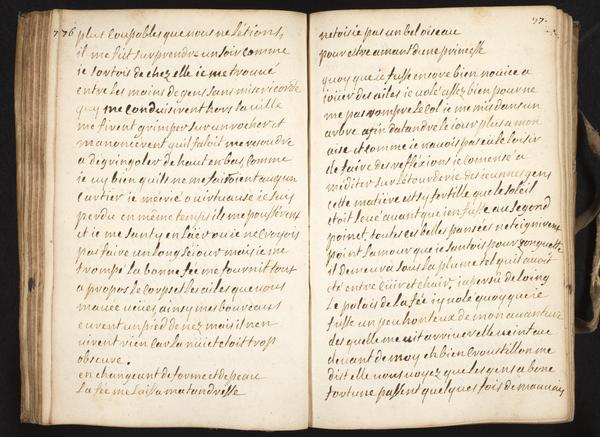 776
plus Coupables que nous ne letions,
il me fit surprendre un soir comme
ie sortois de chez elle ie me trouvé
entre les mains de gens sans misericorde
quy me conduisirent hors la ville
me firent grimper sur un rocher et
manoncerent quil faloit me resoudre
a degringoler de haut en bas, Comme
ie vy bien quils ne me faisoient aucun
cartier ie m'ecrié o virtuause ie suis
perdu en mesme temps ils me pousserent
et ie me santy en l'air ou ie ne croyois
pas faire un long seiour mais ie me
trompé la bonne fée me fournit tout
a propos le corps et les ailes que vous
m'avez ainsy mes boureaux
eurent un pied de nez mais il n'en
virent rien car la nuit etoit trop
obscure.
en changeant de forme et de peau
La fée me laissa ma tandresse
77.
ne toisie pas un bel oiseau
pour estre amant d'une princesse
quoy que ie fusse encore bien novice a
iouer des ailes ie volé assez bien pour ne
me pas rompre le Col ie me mis dans un
arbre afin datandre le iour plus a mon
aise et comme ie n'avois pas eu le loisir
de faire des reflexions ie comensé a
mediter sur letourderie des ieunes gens
cette matiere est sy fertille que le soleil
etoit levé avant que i'en fusse au segond
point, toutes ces belles pansées neteignirent
point lamour que ie santois pour
il demeura sous la plume tel quil avoit
été entre Cuir et chair, i'aperçu de loing
Le palais de la fée iy volé quoy que ie
fusse un peu honteux de mon avanture
des quelle me vit arriver elle vint au
devant de moy eh bien Croustillon me
dit elle vous voyez que les gens a bone
fortune passent quelques fois de mauvais